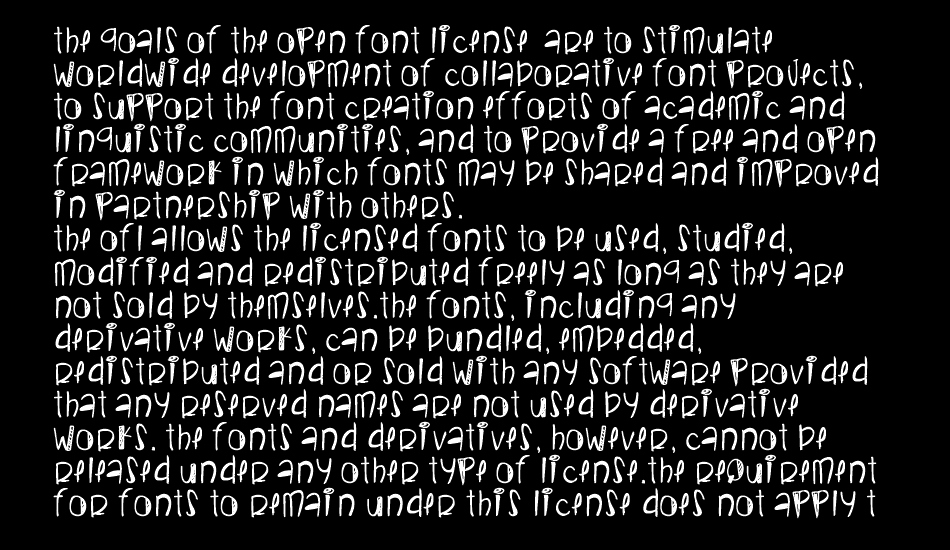 the goals of the open font license are to stimulate
worldwide development of collaborative font projects,
to support the font creation efforts of academic and
linguistic communities, and to provide a free and open
framework in which fonts may be shared and improved
in partnership with others.
the ofl allows the licensed fonts to be used, studied,
modified and redistributed freely as long as they are
not sold by themselves.the fonts, including any
derivative works, can be bundled, embedded,
redistributed and or sold with any software provided
that any reserved names are not used by derivative
works. the fonts and derivatives, however, cannot be
released under any other type of license.the requirement
for fonts to remain under this license does not apply t